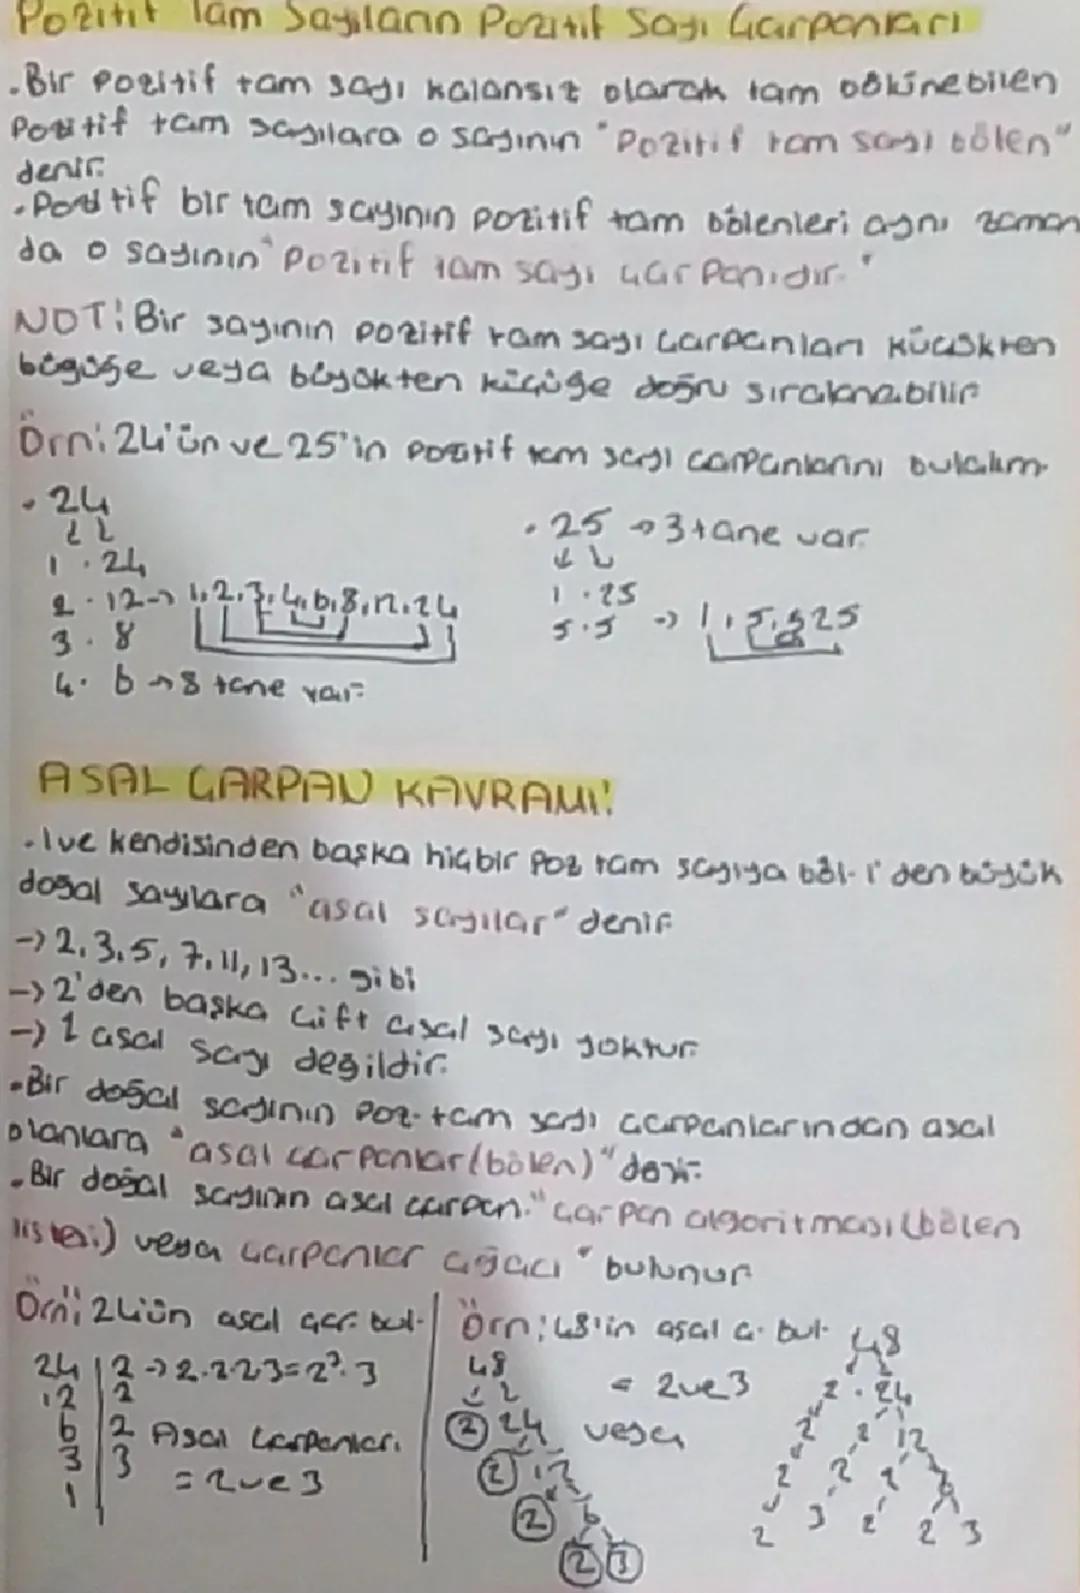 Pozitif Tam Sayıların Pozitif Sayı Çarpanları
.Bir pozitif tam sayı kalansız olarak tam bölünebilen
Pozitif tam sayılara o sayının "Pozitif tam sayı bölen"
denir.
.Pozitif bir tam sayının pozitif tam bölenleri aynı zaman
da o sayının "Pozitif tam sayı çarpanıdır."
NOT: Bir sayının pozitif tam sayı çarpanları küçükten
büyüğe veya büyükten küçüğe doğru sıralanabilir
Örn: 24'ün ve 25'in pozitif tam sayı çarpanlarını bulalım.
. 24
1 . 24
2 . 12 -> 1,2,3,4,6,8,12,24
3 . 8
4 . 6 -> 8 tane var.
. 25 -> 3 tane var.
1 . 25
5 . 5 -> 1,5,25
ASAL ÇARPAN KAVRAMI!
.1 ve kendisinden başka hiçbir poz tam sayıya böl- 1'den büyük
doğal sayılara "asal sayılar" denir
-> 2,3,5,7,11,13... gibi
-> 2'den başka çift asal sayı yoktur.
-> 1 asal sayı değildir.
.Bir doğal sayının poz. tam sayı çarpanlarından asal
olanlara "asal çarpanlar (bölen)" denir.
.Bir doğal sayının asal çarpan. "çarpan algoritması (bölen
listesi) veya çarpanlar ağacı" bulunur
Örn; 24'ün asal çar. bul.
24 | 2 -> 2.2.2.3=2³.3
12 | 2
6 | 2 Asal Çarpanları
3 | 3 = 2 ve 3
1
Örn: 48'in asal ç. bul.
48
2 24
2 12
2 6
2 3
= 2 ve 3
veya
48
2 . 24
2 2 12
2 2 2
2 3 2 2 3